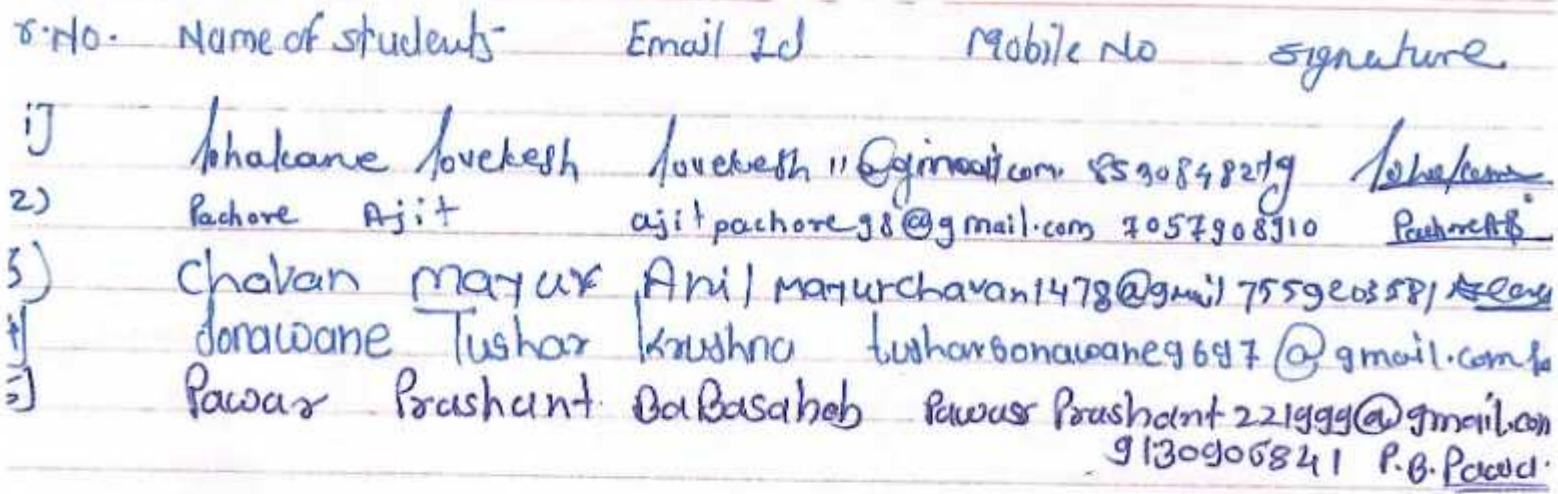 r.No. Name of students Email Id Mobile No signature
1] lovekesh lovekesh11@gmail.com
2) Pachore Ajit ajitpachore98@gmail.com 7057908910 PachoreAB
3) Chavan mayur Anil mayurchavan1478@gmail 7559203581
4] Sonawane Tushar Krushna tusharsonawane9697@gmail.com
5] Pawar Prashant BaBasaheb PawarPrashant221999@gmail.com
9130906841 P.B.Pawar.